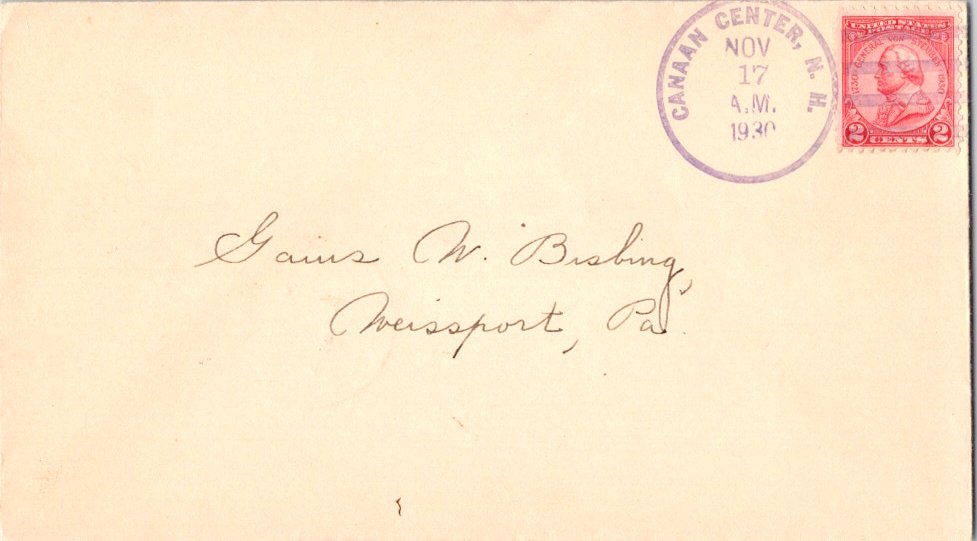 CANAAN CENTER, N. H.
NOV
17
A.M.
1930
UNITED STATES
POSTAGE
1730 GENERAL VON STEUBEN 1930
2 CENTS 2
Gaius W. Bisbing,
Weissport, Pa.